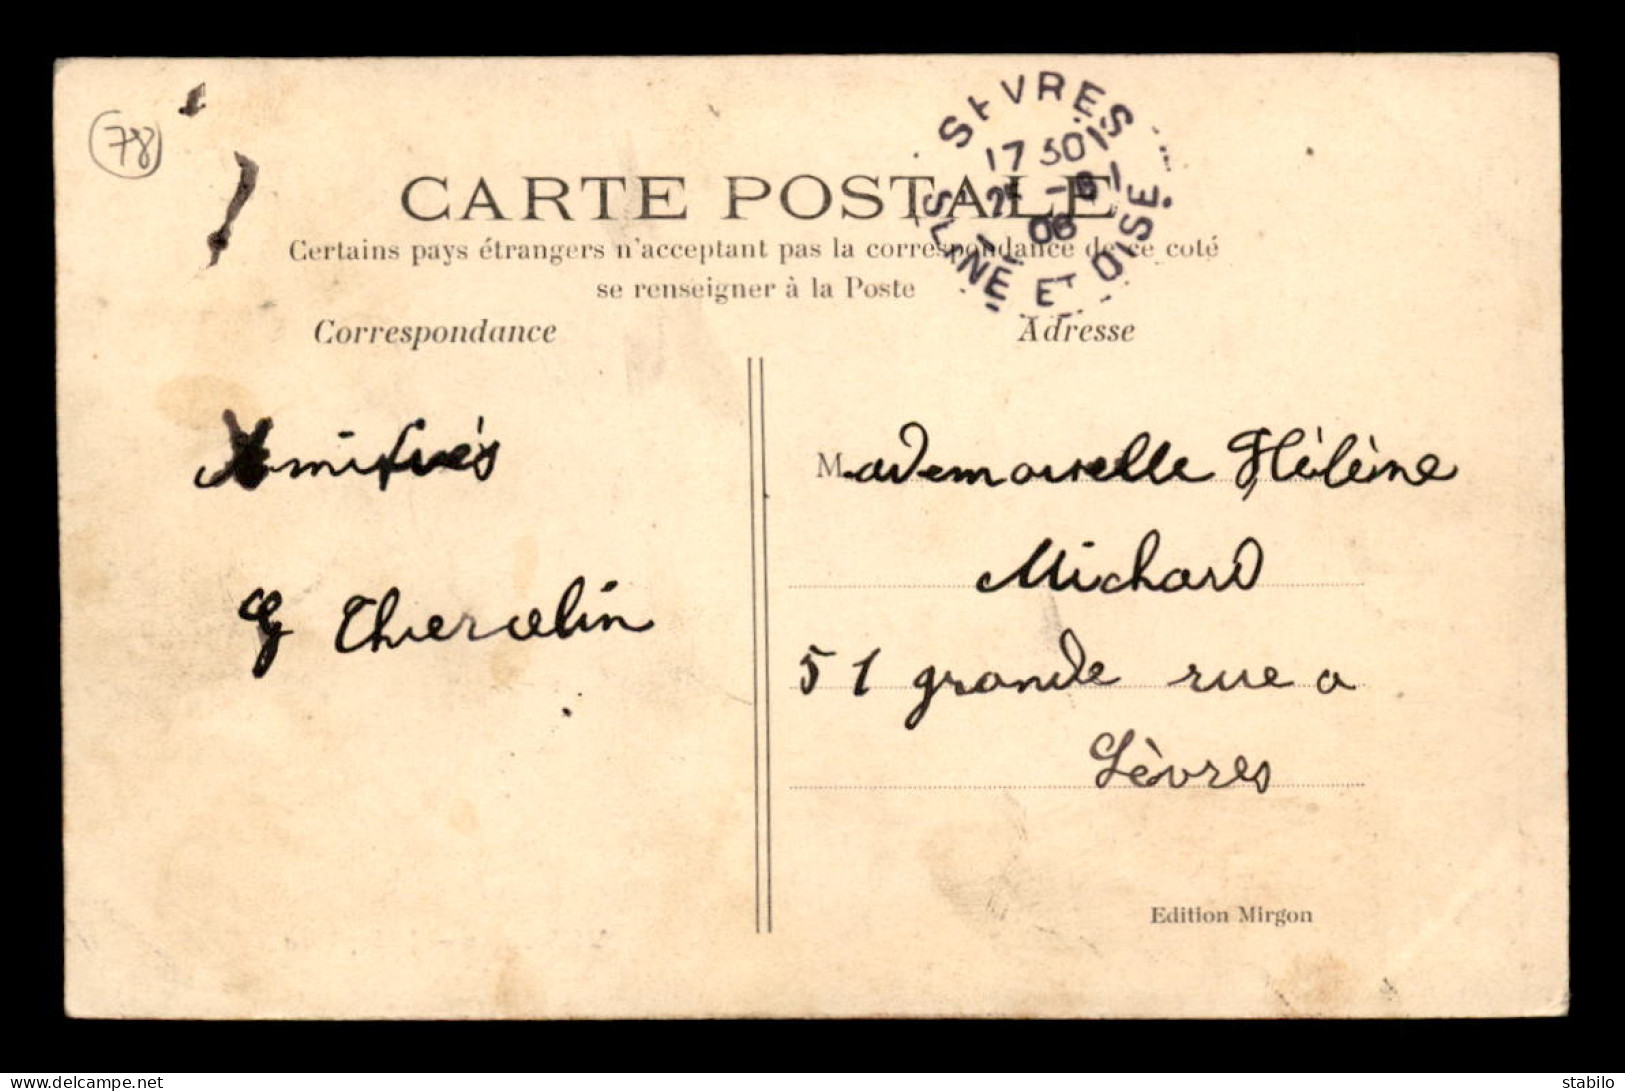 78
SEVRES
17 30
06
SEINE ET OISE
CARTE POSTALE
Certains pays étrangers n'acceptant pas la correspondance de ce coté
se renseigner à la Poste
Correspondance
Amitiés
G
Adresse
Mademoiselle Hélène
Michard
51 grande rue a
Sèvres
Edition Mirgon
www.delcampe.net
stabilo